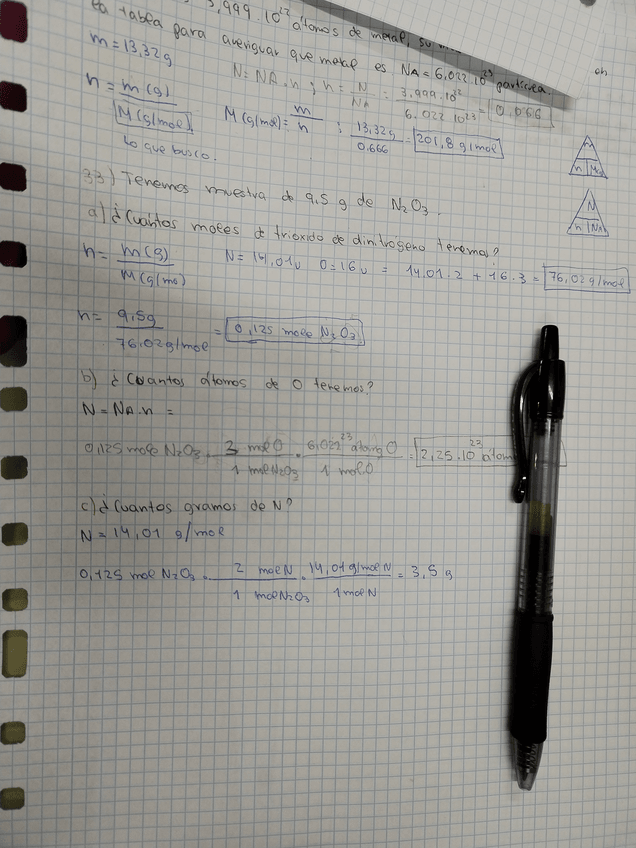 3,999·10²² átomos de metal, su
la tabla para averiguar que metal es NA = 6,022·10²³ partícula.
m = 13,32g
N = NA·n ; n = N/NA : 3,999·10²²/6,022 10²³ = 0,066
n = m(g)/M(g/mol)
Lo que busco.
M(g/mol) = m/n ; 13,32g/0,666 = 201,8 g/mol
m
n M
N
n NA
33) Tenemos muestra de 9,5 g de N₂O₃.
a) ¿Cuantos moles de trioxido de dinitrogeno tenemos?
n = m(g)/M(g/mo) N = 14,01u O = 16u = 14,01·2 + 16·3 = 76,02 g/mol
n = 9,5g/76,02g/mol = 0,125 mole N₂O₃
b) ¿Cuantos átomos de O tenemos?
N = NA·n =
0,125 mole N₂O₃ · 3 mol O/1 mol N₂O₃ · 6,022²³ átomos O/1 mol O = 2,25·10²³ átom
c) ¿Cuantos gramos de N?
N = 14,01 g/mol
0,125 mol N₂O₃ · 2 mol N/1 mol N₂O₃ · 14,01g/mol N/1 mol N = 3,5 g